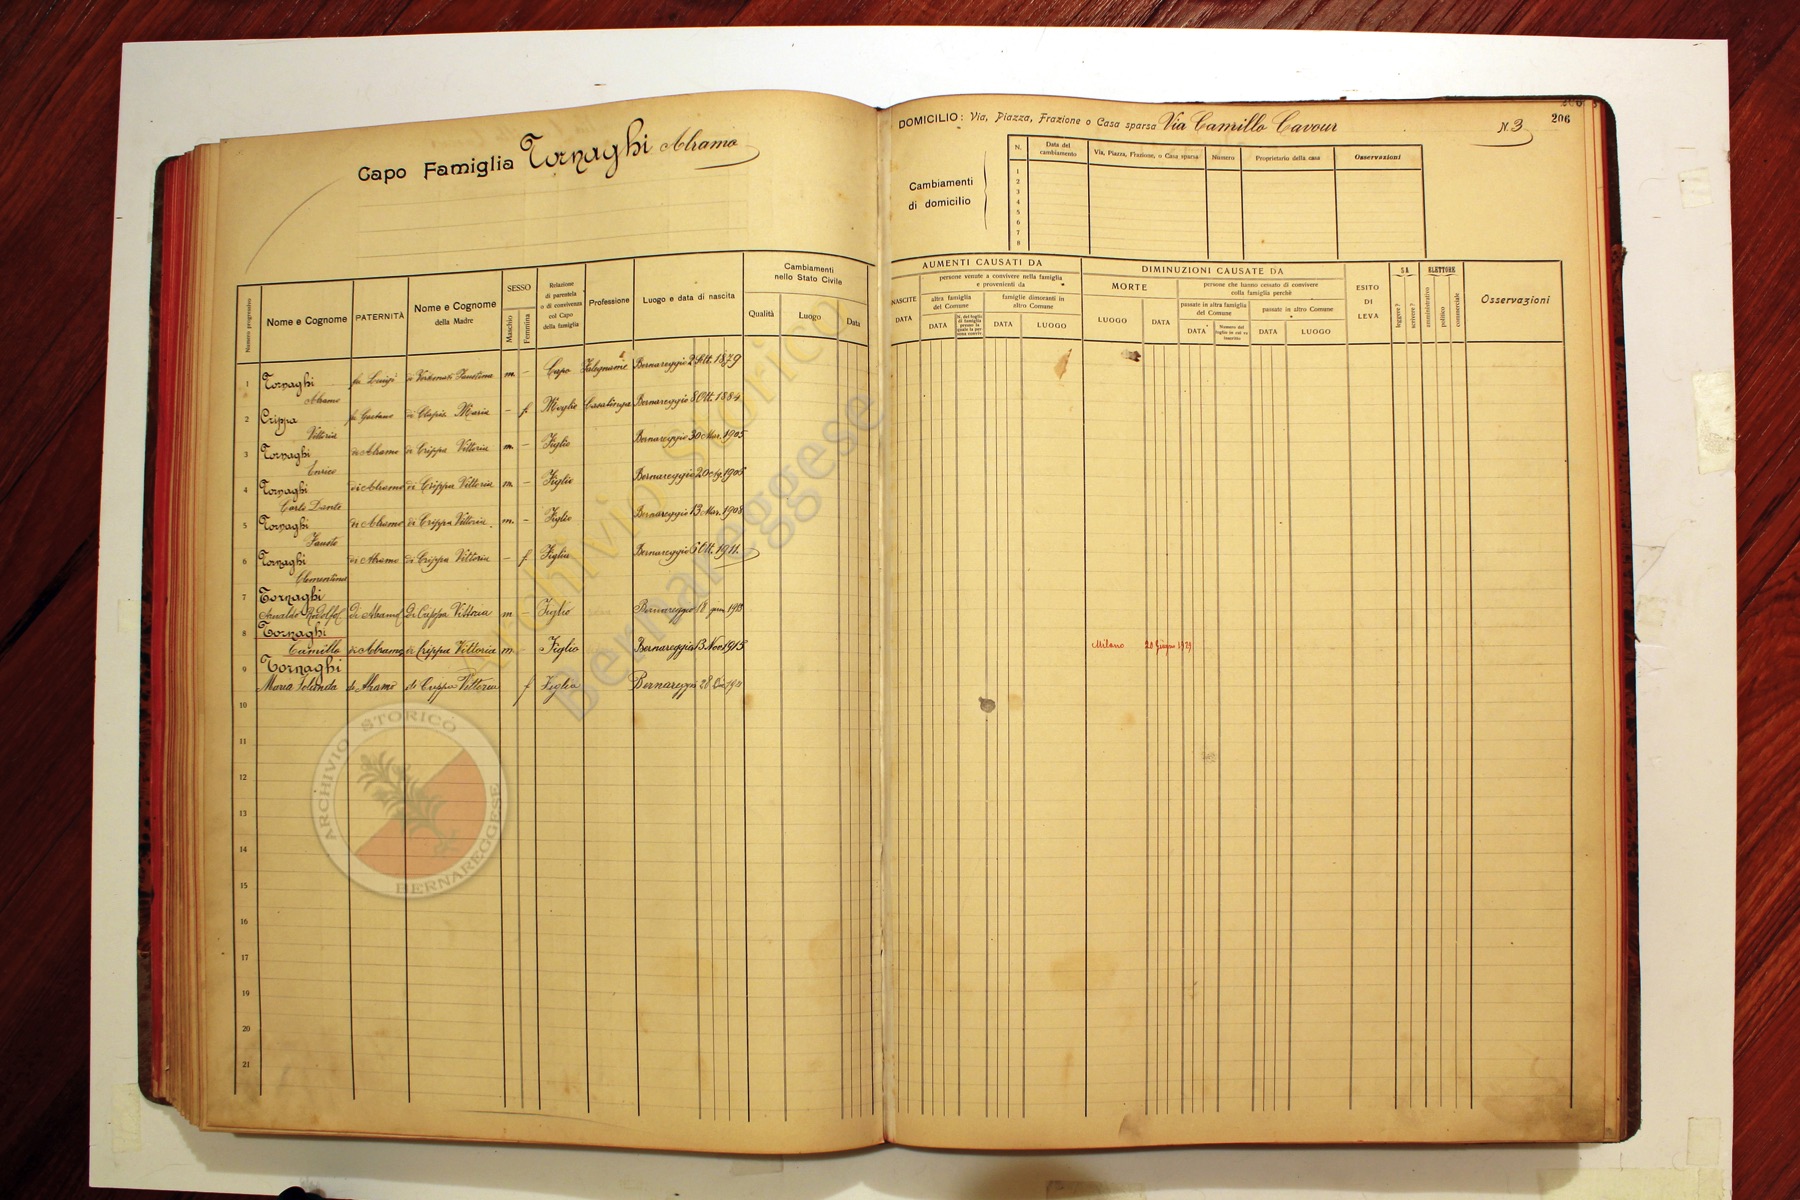 Capo Famiglia Tornaghi Abramo
Numero progressivo
Nome e Cognome
PATERNITÀ
Nome e Cognome
della Madre
SESSO
Maschio
Femmina
Relazione
di parentela
o di convivenza
col Capo
della famiglia
Professione
Luogo e data di nascita
Cambiamenti
nello Stato Civile
Qualità
Luogo
Data
1 Tornaghi fu Luigi di Faustina m. – Capo Falegname Bernareggio 2 1879
Abramo
2 Crippa fu Gaetano di Maria – f. Moglie Casalinga Bernareggio 8 Ott. 1884
Vittoria
3 Tornaghi di Abramo di Crippa Vittoria m. – Figlio Bernareggio 30 Mar. 1905
Enrico
4 Tornaghi di Abramo di Crippa Vittoria m. – Figlio Bernareggio 20 1906
Carlo Dante
5 Tornaghi di Abramo di Crippa Vittoria m. – Figlio Bernareggio 13 Mar. 1908
Fausto
6 Tornaghi di Abramo di Crippa Vittoria – f. Figlia Bernareggio 6 Ott. 1911.
Clementina
7 Tornaghi
Arnaldo Rodolfo Di Abramo Di Crippa Vittoria m – Figlio Bernareggio 18 1913
8 Tornaghi
Camillo di Abramo di Crippa Vittoria m Figlio Bernareggio 13 Nov 1915
9 Tornaghi
Maria Iolanda di Abramo di Crippa Vittoria f Figlia Bernareggio 28
10
11
12
13
14
15
16
17
18
19
20
21
206
DOMICILIO: Via, Piazza, Frazione o Casa sparsa Via Camillo Cavour N. 3
206
Cambiamenti
di domicilio
N.
Data del
cambiamento
Via, Piazza, Frazione, o Casa sparsa
Numero
Proprietario della casa
Osservazioni
1
2
3
4
5
6
7
8
AUMENTI CAUSATI DA
NASCITE
DATA
persone venute a convivere nella famiglia
e provenienti da
altra famiglia
del Comune
DATA
famiglie dimoranti in
altro Comune
DATA
LUOGO
DIMINUZIONI CAUSATE DA
MORTE
LUOGO
DATA
persone che han cessato di convivere
colla famiglia perchè
passate in altra famiglia
del Comune
DATA
passate in altro Comune
DATA
LUOGO
ESITO
DI
LEVA
SA
leggere?
scrivere?
ELETTORE
amministrativo
politico
commerciale
Osservazioni
Milano 20 Giugno 1929
Archivio Storico
Bernareggese
ARCHIVIO STORICO
BERNAREGGESE